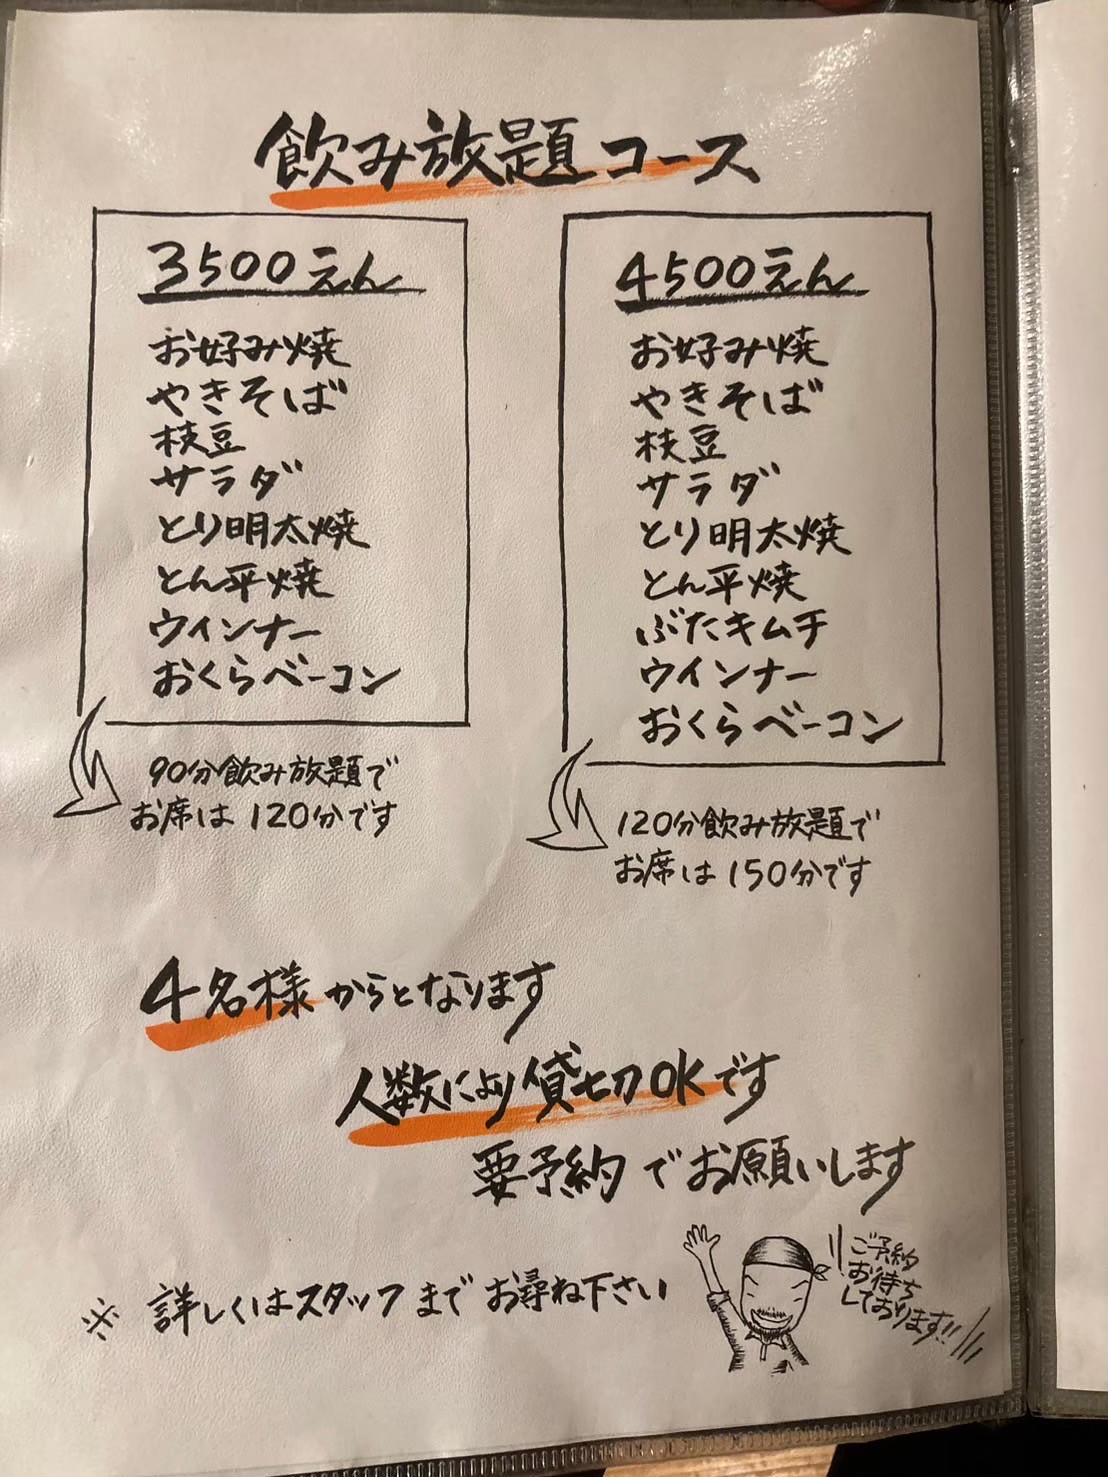 飲み放題コース
3500えん
お好み焼
やきそば
枝豆
サラダ
とり明太焼
とん平焼
ウインナー
おくらベーコン
90分飲み放題で
お席は120分です
4500えん
お好み焼
やきそば
枝豆
サラダ
とり明太焼
とん平焼
ぶたキムチ
ウインナー
おくらベーコン
120分飲み放題で
お席は150分です
4名様からとなります
人数により貸切OKです
要予約でお願いします
※ 詳しくはスタッフまでお尋ね下さい
ご予約
お待ち
しております!!